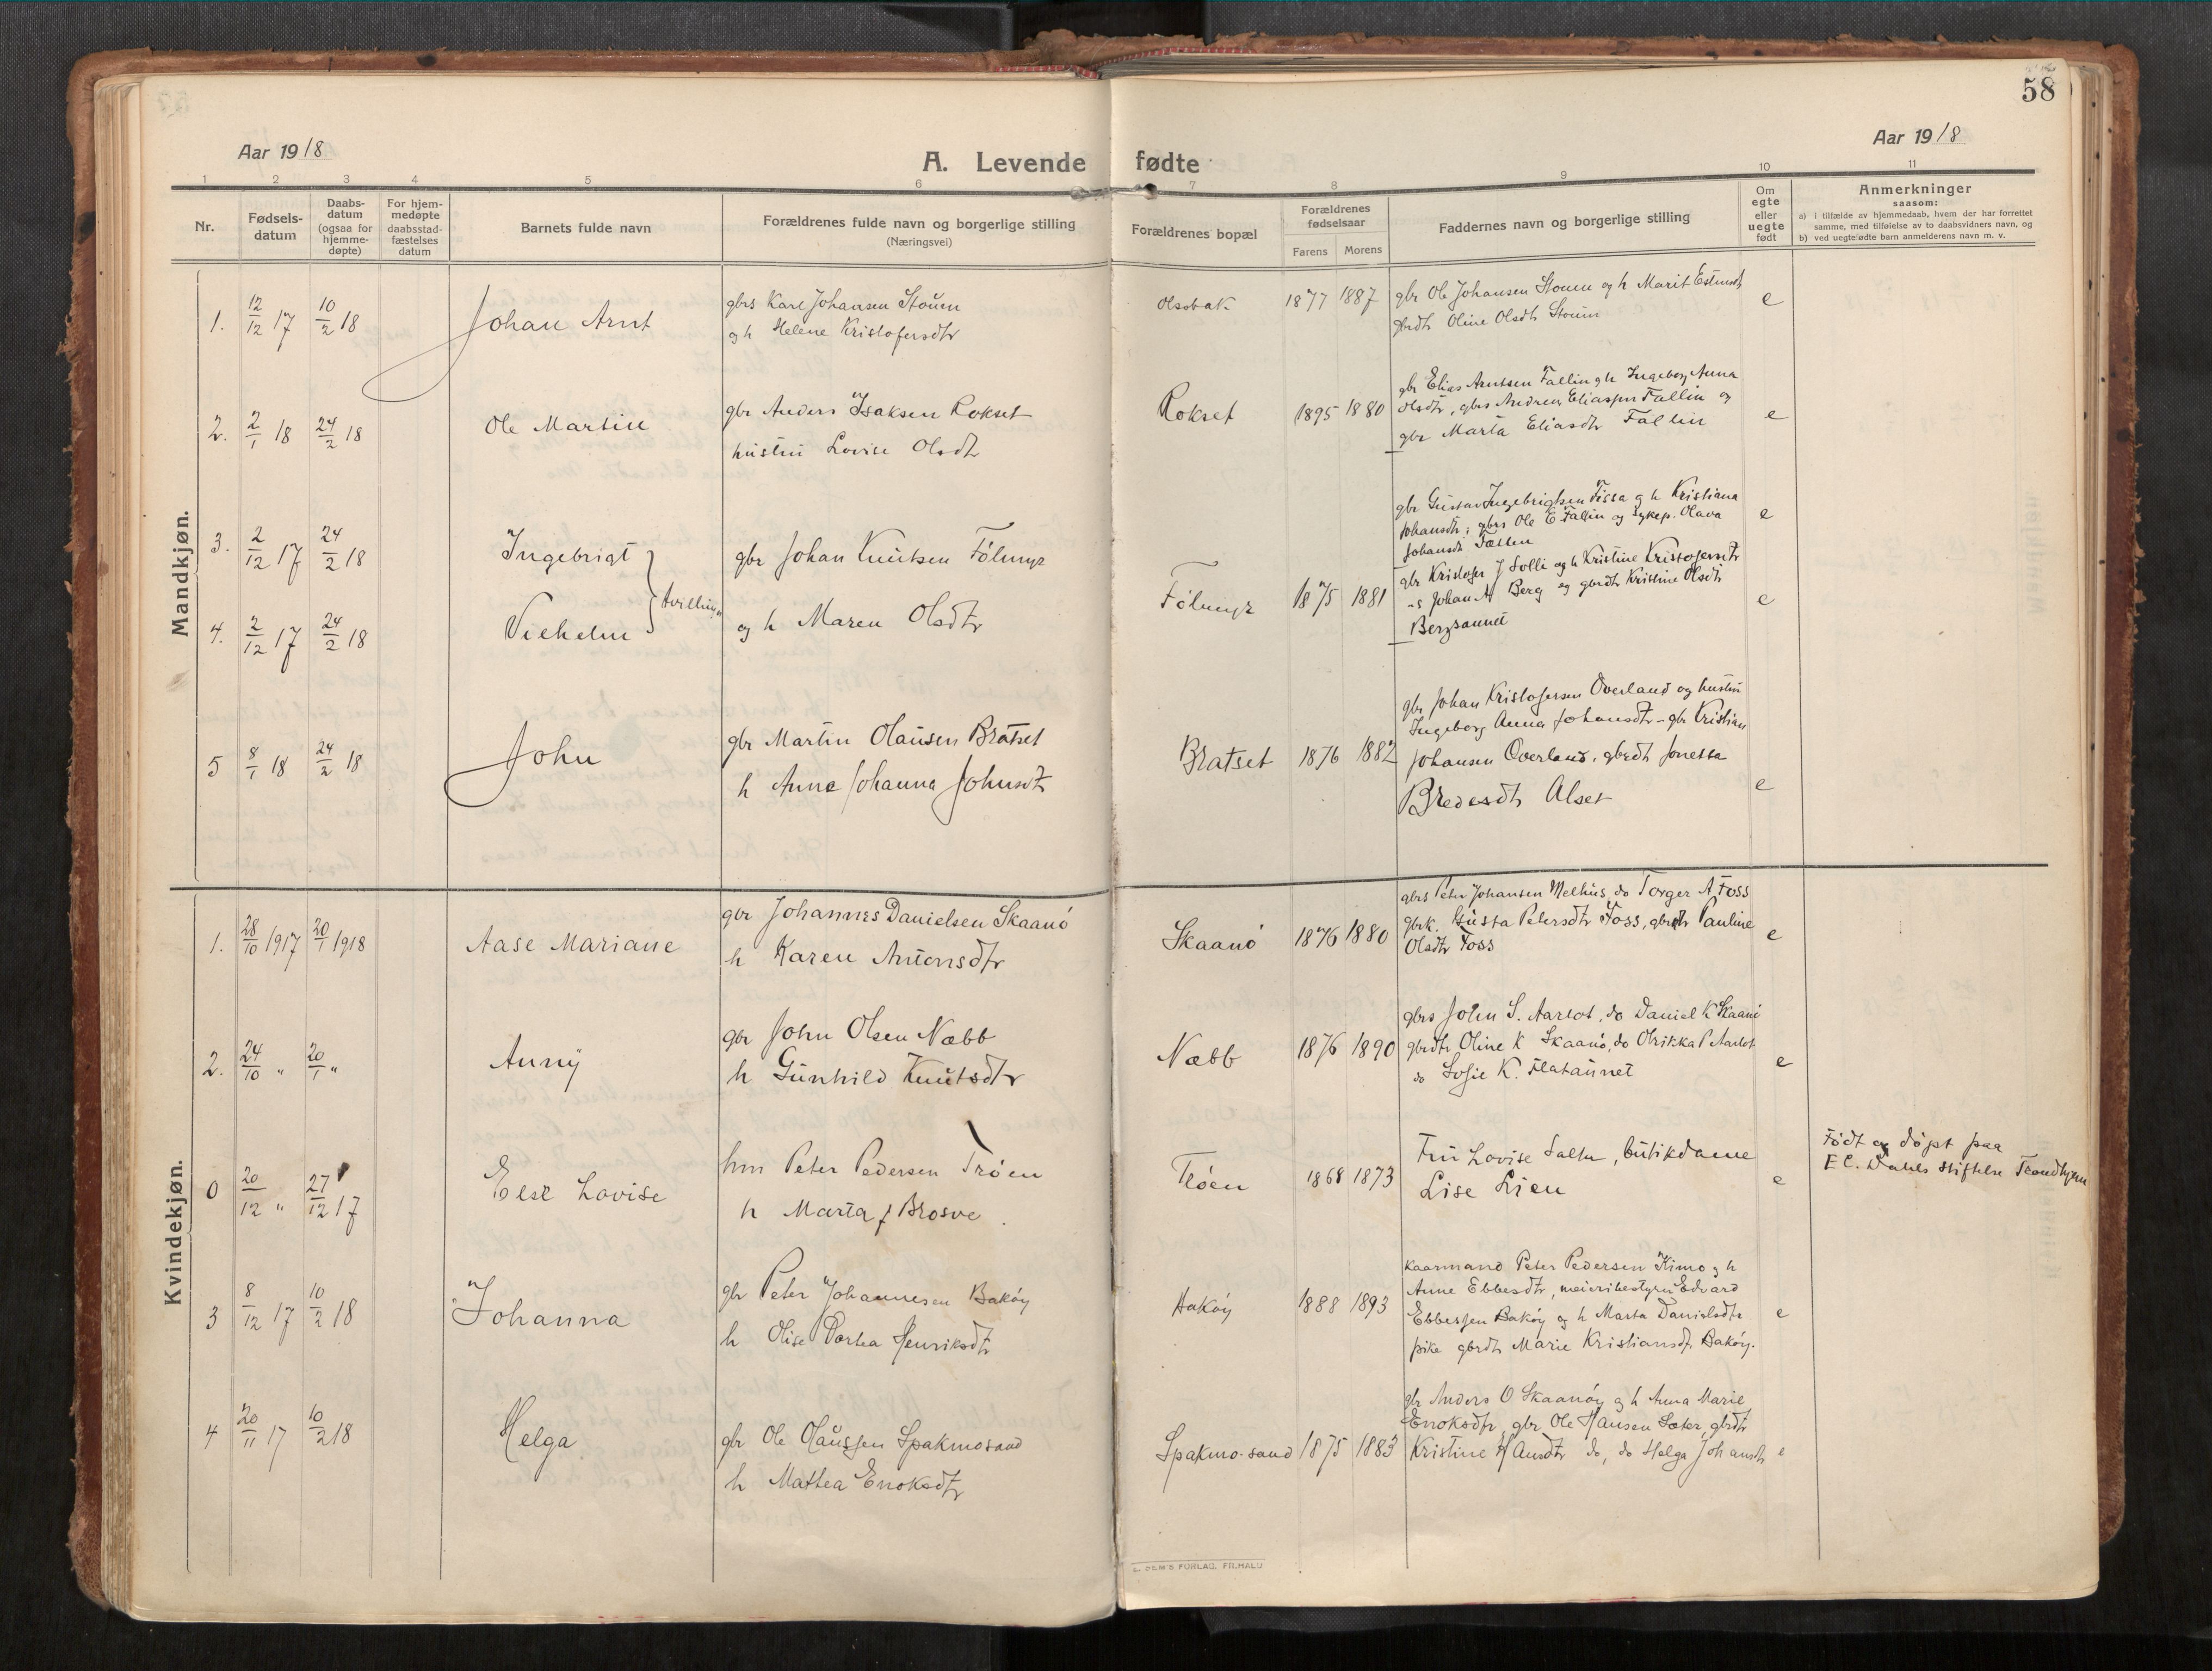 58
Aar 1918
Aar 1918
A. Levende fødte
1 2 3 4 5 6 7 8 9 10 11
Nr.
Fødsels-
datum
Daabs-
datum
(ogsaa for
hjemme-
døpte)
For hjem-
medøpte
daabsstad-
fæstelses
datum
Barnets fulde navn
Forældrenes fulde navn og borgerlige stilling
(Næringsvei)
Forældrenes bopæl
Forældrenes
fødselsaar
Farens Morens
Faddernes navn og borgerlige stilling
Om
egte
eller
uegte
født
Anmerkninger
saasom:
a) i tilfælde av hjemmedaab, hvem der har forrettet
samme, med tilføielse av to daabsvidners navn, og
b) ved uegtefødte barn anmelderens navn m. v.
Mandkjøn.
1. 12/12 17 10/2 18 Johan Arnt
gbrs Karl Johansen Stouen
og h Helene Kristofersdtr
Olsobak 1877 1887
gbr Ole Johansen Stouen og h Marit Estensdt
gbrdtr Oline Olsdtr Stouen
e
2. 2/1 18 24/2 18 Ole Martin
gbr Anders Isaksen Rokset
hustru Lovise Olsdtr
Rokset 1895 1880
gbr Elias Arntsen Fallin og h Ingeborg Anna
Olsdtr, gbrs Andreas Eliassen Fallin og
gbr Marta Eliasdtr Fallin
e
3. 2/12 17 24/2 18 Ingebrigt
4. 2/12 17 24/2 18 Vilhelm
tvilling
gbr Johan Knutsen Følmyr
og h Maren Olsdtr
Følmyr 1875 1881
gbr Gustav Ingebrigtsen Fissa og h Kristiana
Johansdtr; gbrs Ole E. Fallin og sykep. Olava
Johansdt
e
gbr Kristofer J Solli og h Kristine Kristofersdtr
-s Johan A Berg og gbrdtr Kristine Olsdtr
Bergsaunet
e
5 8/1 18 24/2 18 John
gbr Martin Olausen Bratset
h Anne Johanna Johnsdtr
Bratset 1876 1882
gbr Johan Kristofersen Overland og hustru
Ingeborg Anna Johansdtr - gbr Kristian
Johansen Overland, gbrdtr Jonetta
Bredesdtr Alset
e
Kvindekjøn.
1. 28/10 1917 20/1 1918 Aase Mariane
gbr Johannes Danielsen Skaanø
h Karen Antonsdtr
Skaanø 1876 1880
gbrs Peter Johansen Melhus, do Torger A Foss
gbrk. Gusta Petersdtr Foss, gbrdtr Pauline
Olsdtr Foss
e
2. 24/10 " 20/1 " Anny
gbr John Olsen Næbb
h Gunhild Knutsdtr
Næbb 1876 1890
gbrs John S. Aarlot, do Daniel K Skaanø
gbrdtr Oline K Skaanø, do Olrikka P Aarlot
do Sofie K. Flataunet
e
0 20/12 " 27/12 17 Else Lovise
hm Peter Pedersen Trøen
h Marta J Brosve
Trøen 1868 1873
Fru Lovise Salter, butikdame
Lise Lien
e
Født og døpt paa
E C. Dahls stiftelse Trondhjem
3 8/12 17 10/2 18 Johanna
gbr Peter Johannesen Bakøy
h Olise Dortea Henriksdtr
Hakøy 1888 1893
Kaarmand Peter Pedersen Kimo og h
Anne Ebbesdtr, meieribestyrer Edvard
Ebbesen Bakøy og h Marta Danielsdtr
pike gbrdtr Marie Kristiansdtr Bakøy.
e
4 20/11 17 10/2 18 Helga
gbr Ole Olaussen Spakmosand
h Mathea Enoksdtr
Spakmo-sand 1875 1883
gbr Anders O Skaanøy og h Anna Marie
Enoksdtr, gbr Ole Hansen Sæter, gbrdtr
Kristine Hansdtr do, do Helga Johansdtr
e
FORLAG, FILHALD